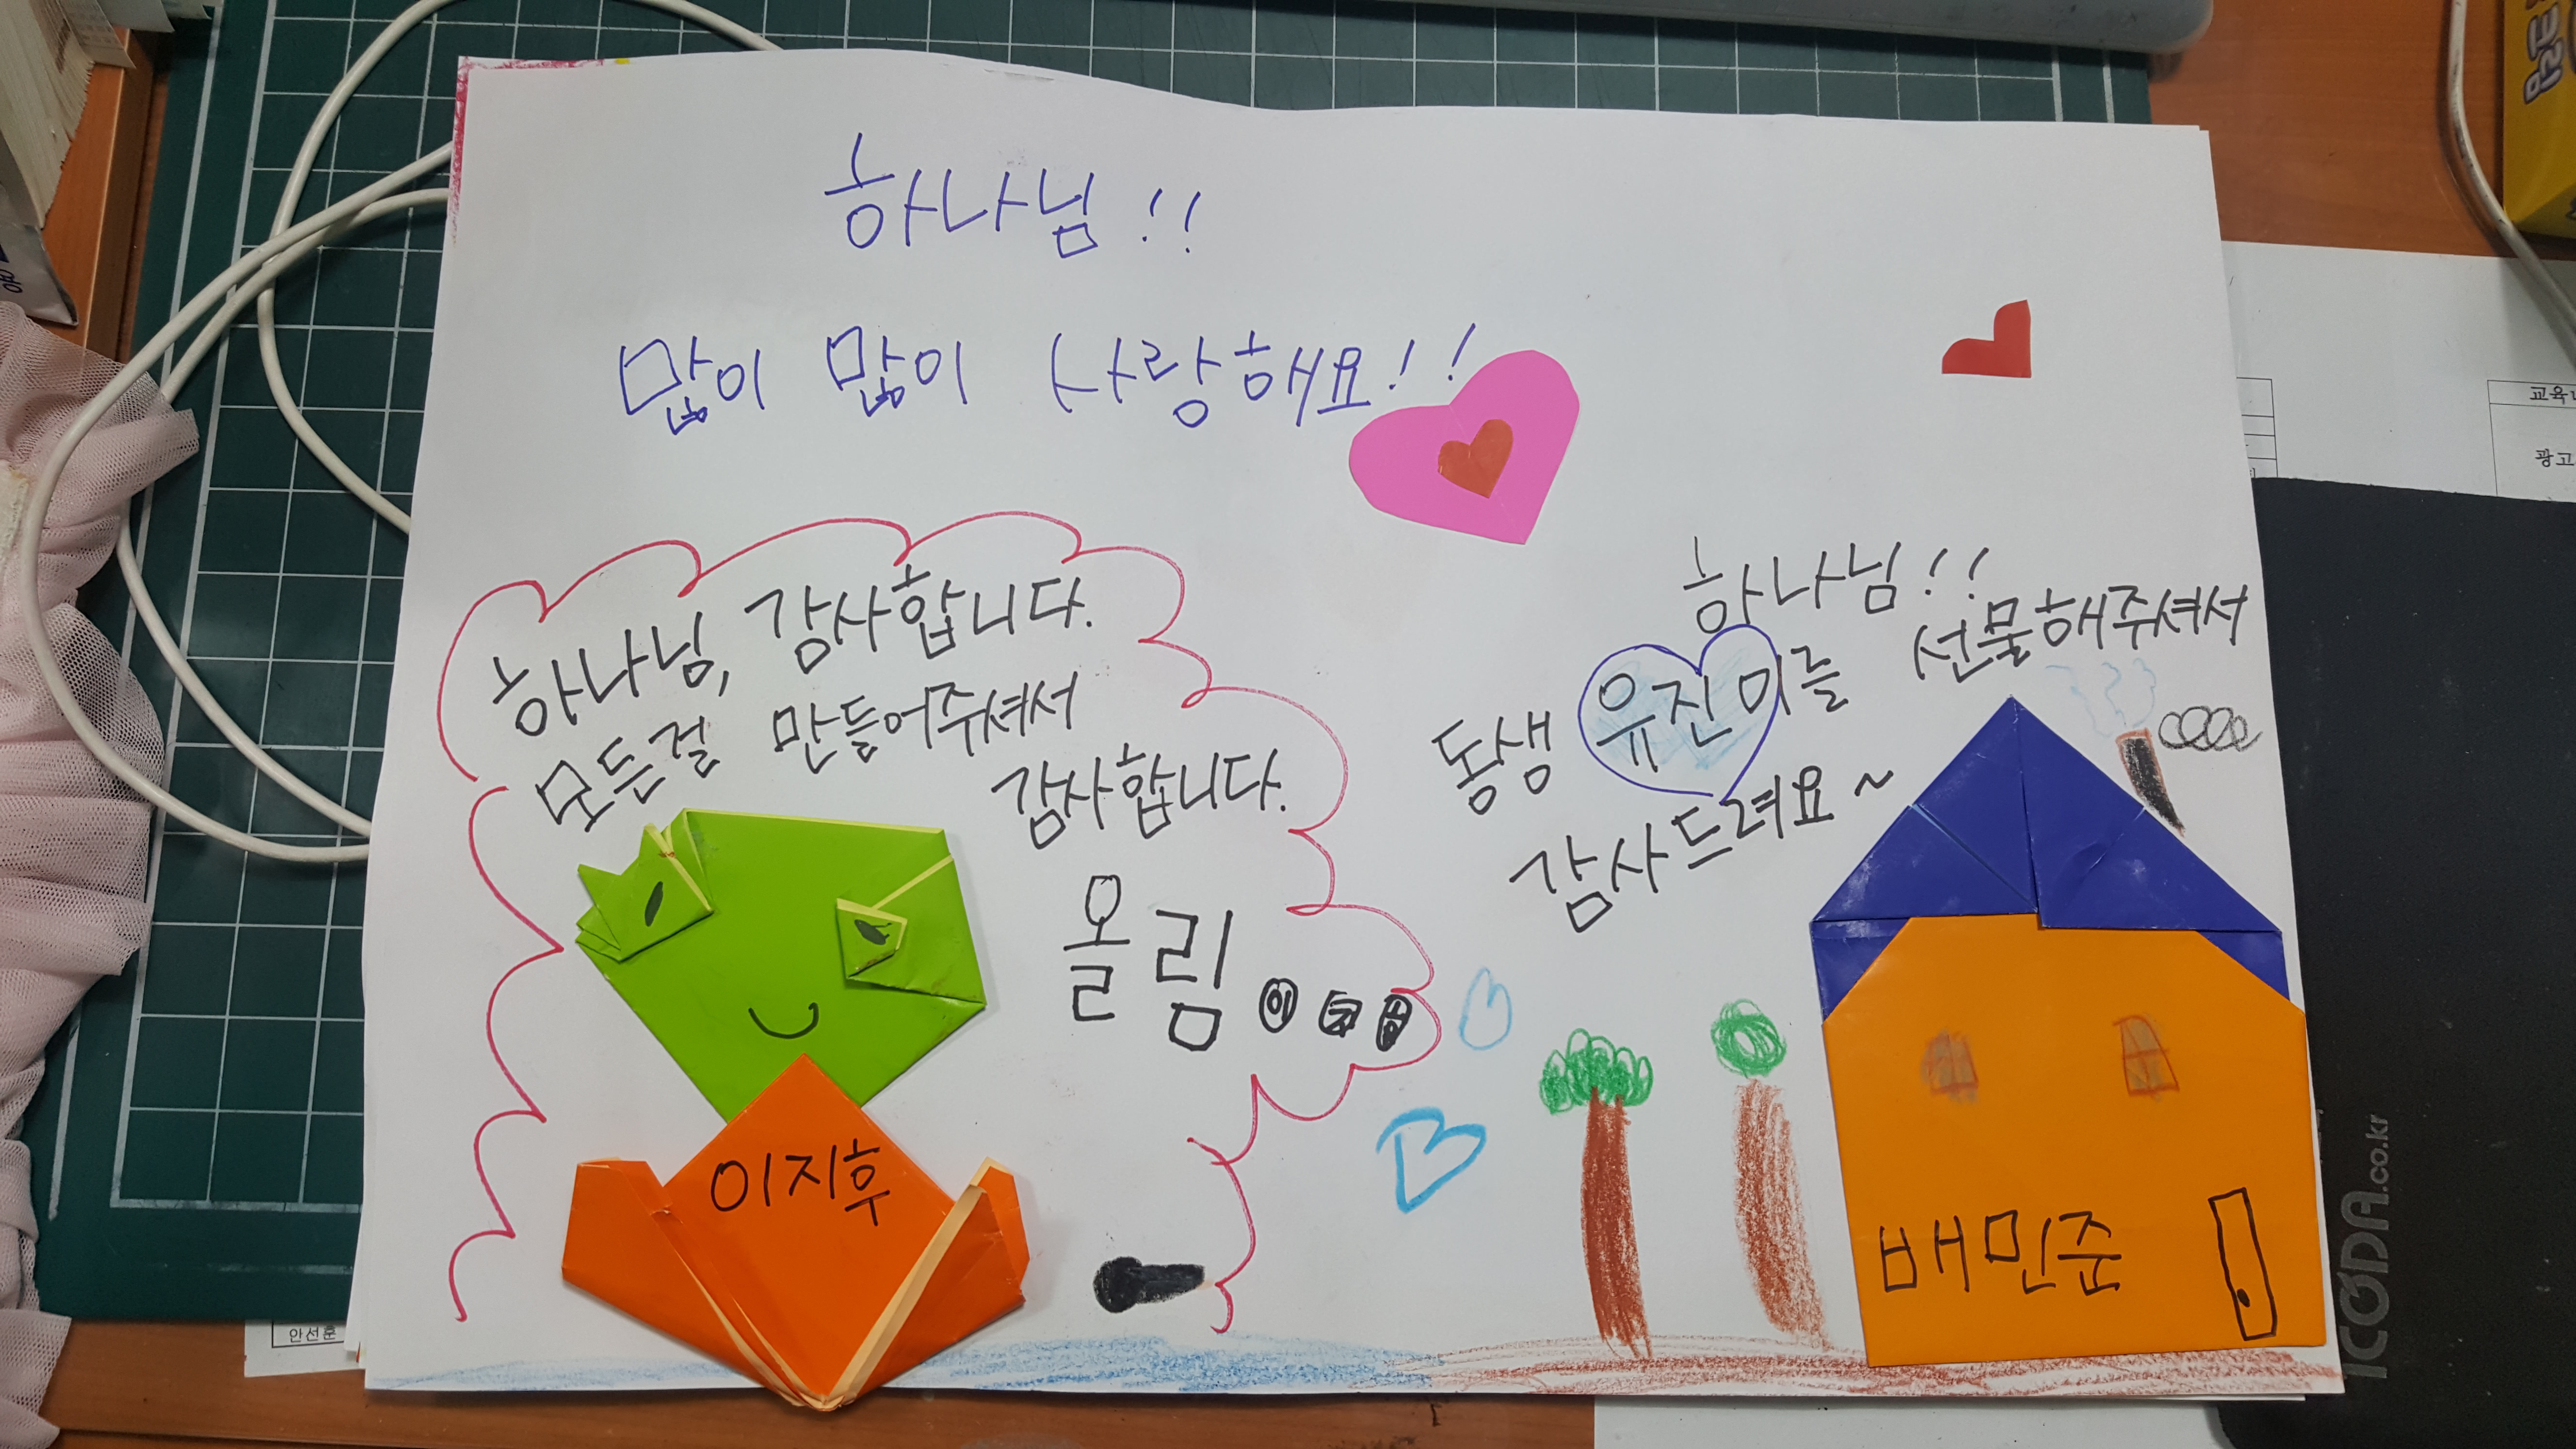 하나님!!
많이 많이 사랑해요!!
하나님, 감사합니다.
모든걸 만들어주셔서
감사합니다.
올림
이지후
하나님!!
동생 유진이를 선물해주셔서
감사드려요~
배민준
ICODA.co.kr
안선훈
광고